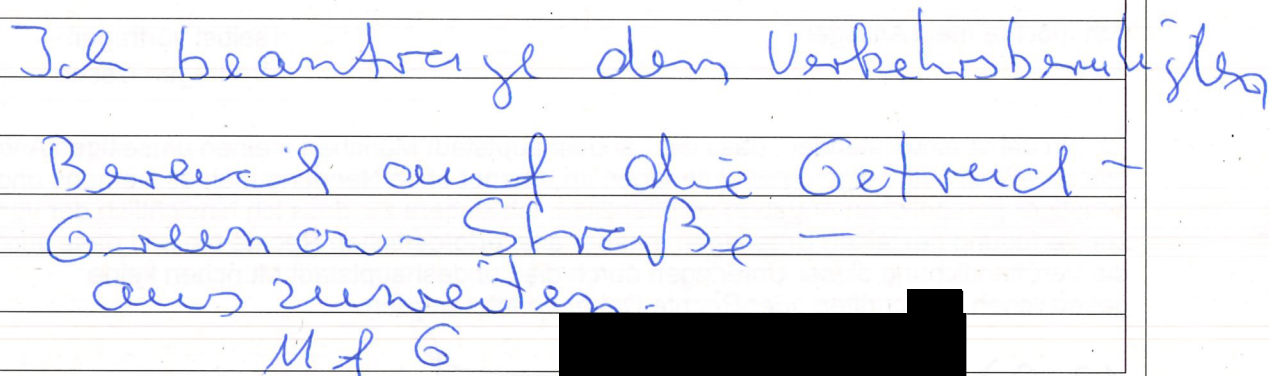 Ich beantrage den Verkehrsberuhigten
Bereich auf die Getrud-
Greenow-Straße-
auszuweiten.
MfG